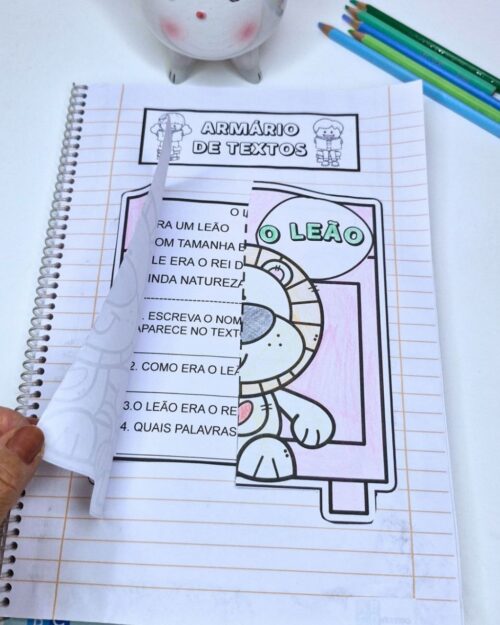 ARMÁRIO
DE TEXTOS
O LEÃO
RA UM LEÃO
OM TAMANHA
LE ERA O REI D
INDA NATUREZA
. ESCREVA O NOM
APARECE NO TEXT
2. COMO ERA O LEÃ
3.O LEÃO ERA O RE
4. QUAIS PALAVRAS